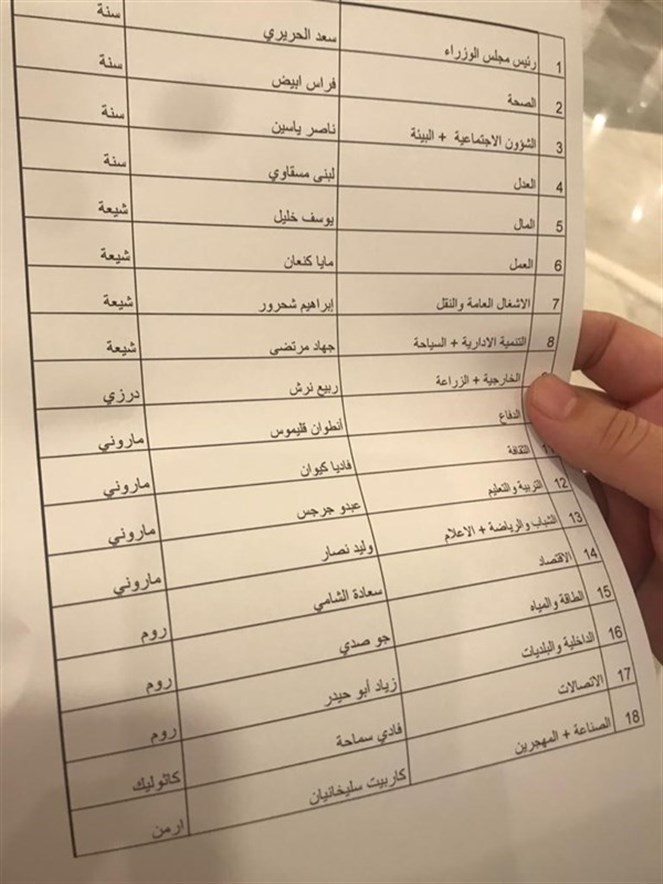 1 رئيس مجلس الوزراء سعد الحريري سنة
2 الصحة فراس ابيض سنة
3 الشؤون الاجتماعية + البيئة ناصر ياسين سنة
4 العدل لبنى مسقاوي سنة
5 المال يوسف خليل شيعة
6 العمل مايا كنعان شيعة
7 الاشغال العامة والنقل إبراهيم شحرور شيعة
8 التنمية الادارية + السياحة جهاد مرتضى شيعة
الخارجية + الزراعة ربيع نرش درزي
الدفاع أنطوان قليموس ماروني
11 الثقافة فاديا كيوان ماروني
12 التربية والتعليم عبدو جرجس ماروني
13 الشباب والرياضة + الاعلام وليد نصار ماروني
14 الاقتصاد سعادة الشامي روم
15 الطاقة والمياه جو صدي روم
16 الداخلية والبلديات زياد أبو حيدر روم
17 الاتصالات فادي سماحة كاثوليك
18 الصناعة + المهجرين كاربيت سليخانيان ارمن